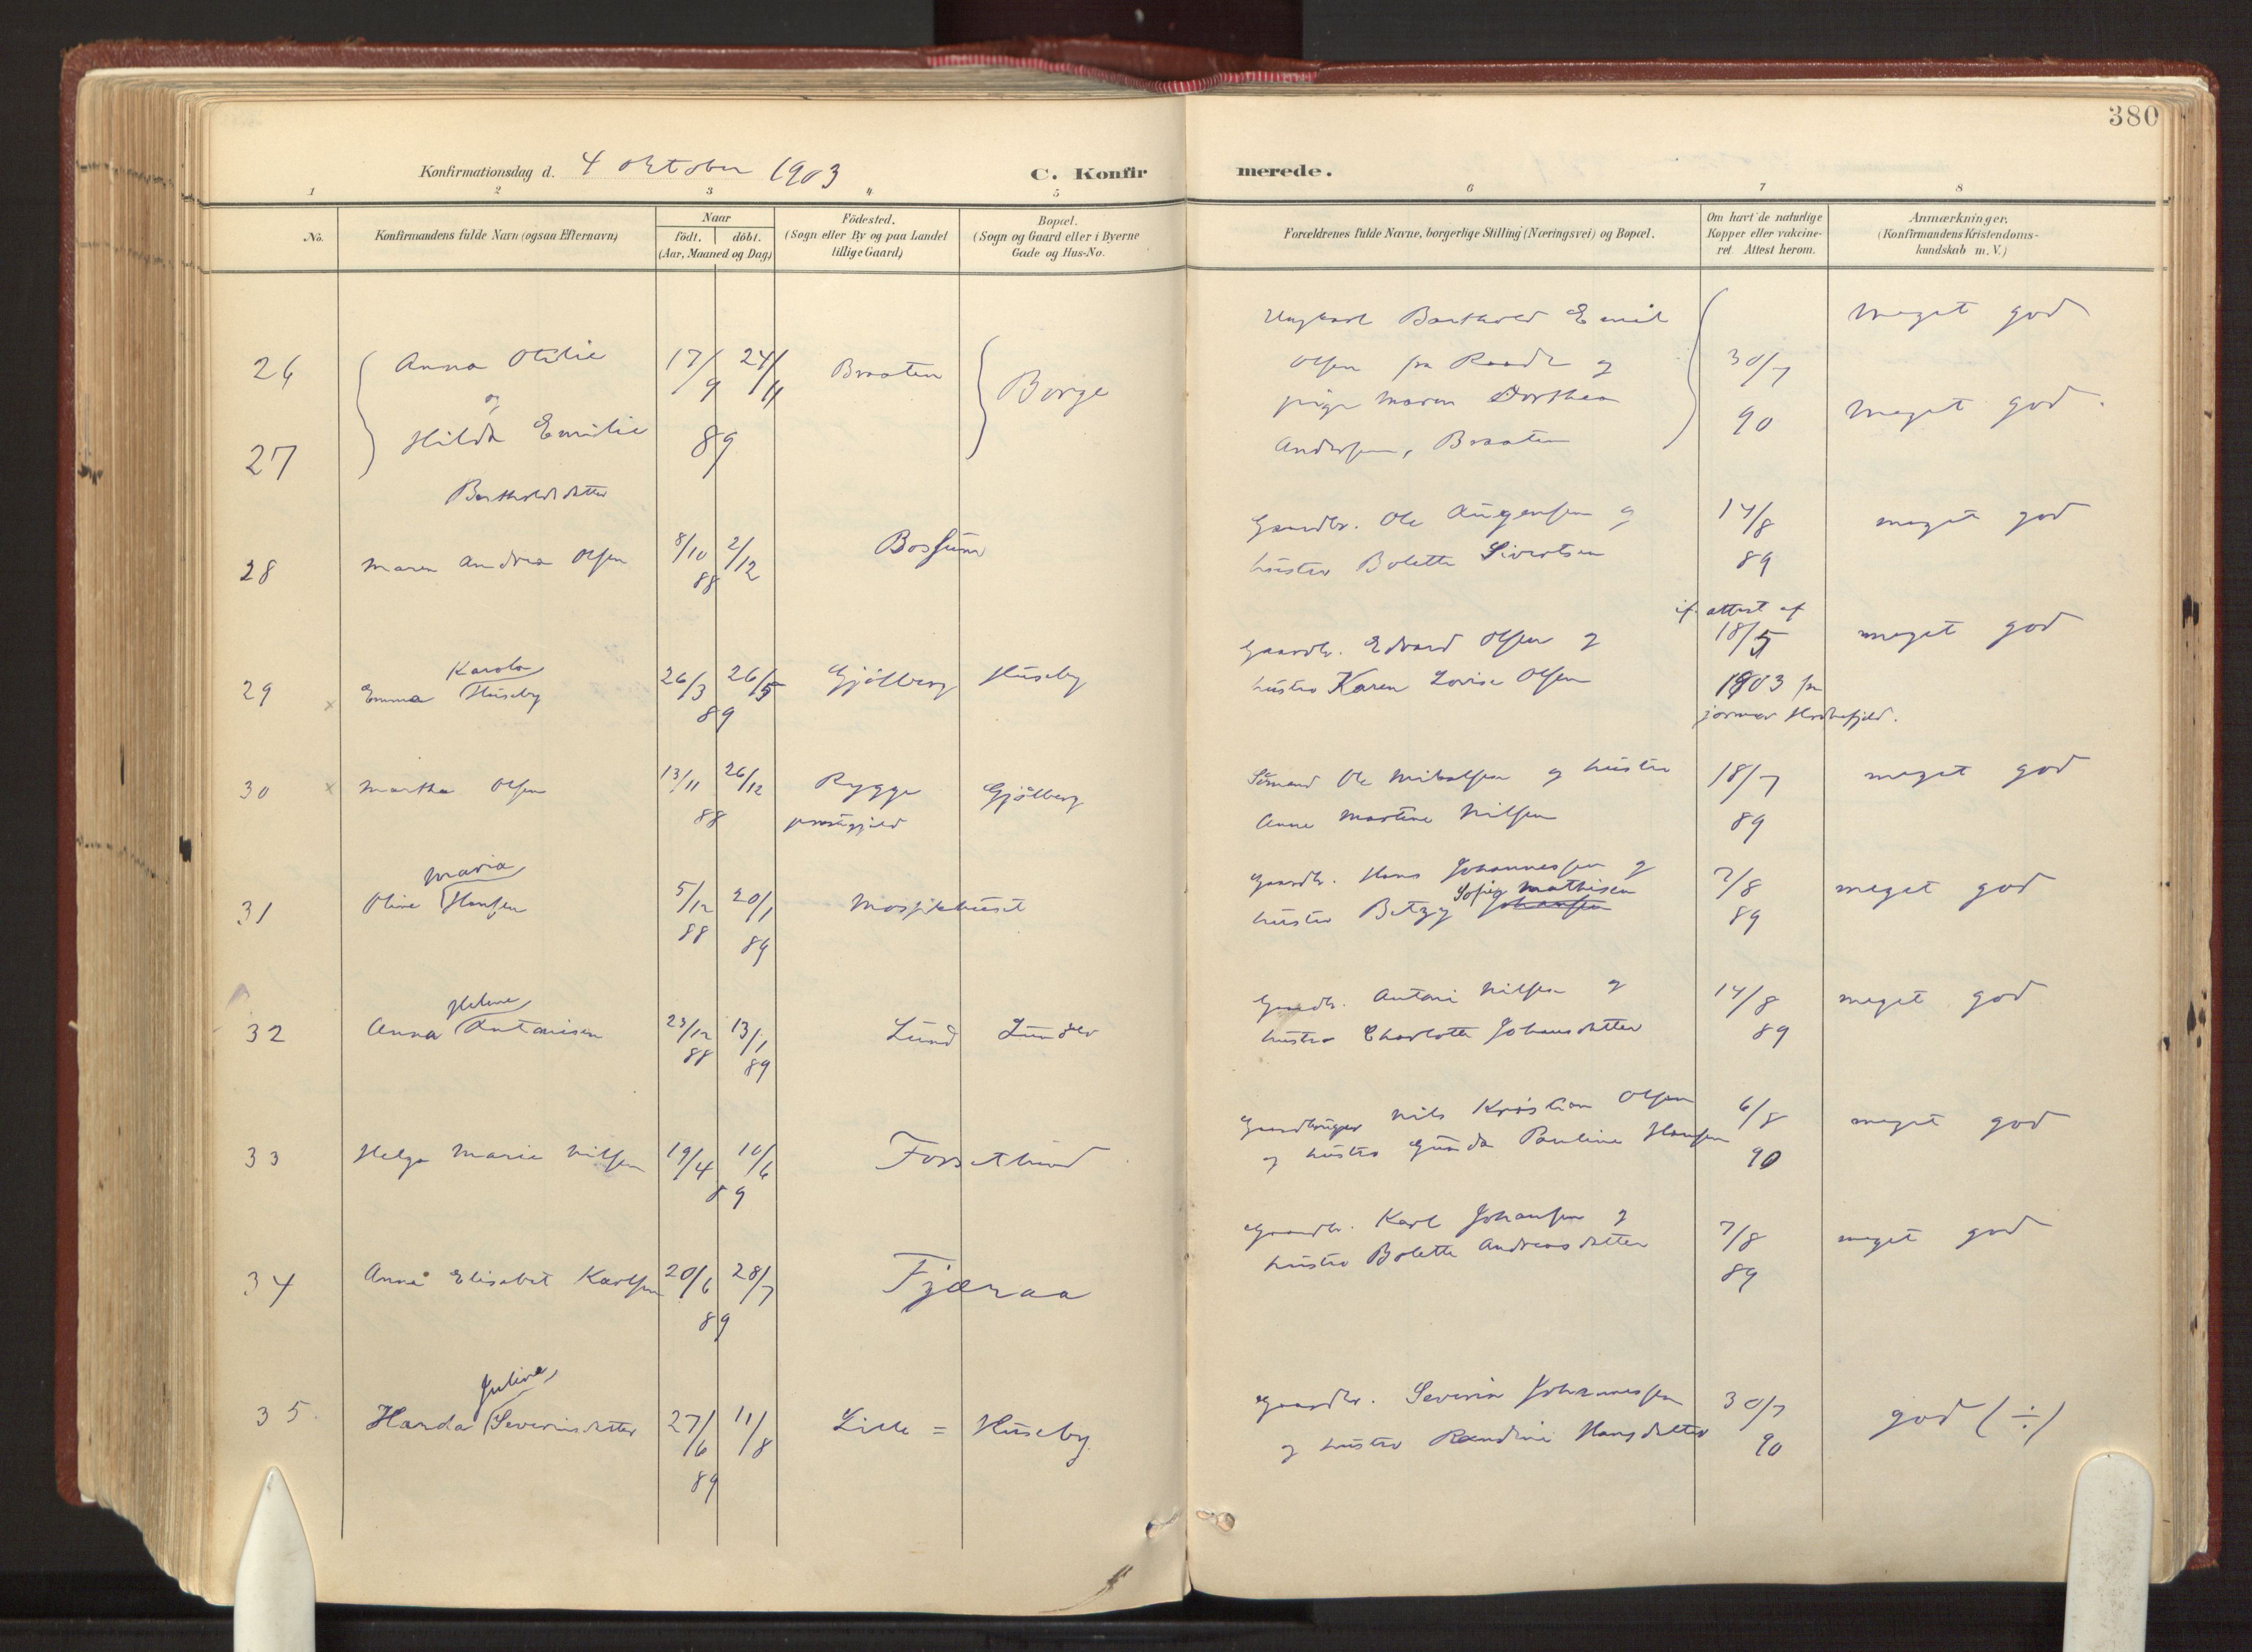 380
Konfirmationsdag d. 4 Oktober 1903
C. Konfirmerede.
1 2 3 4 5 6 7 8
No.
Konfirmandens fulde Navn (ogsaa Efternavn)
Naar
födt. döbt.
(Aar, Maaned og Dag)
Födested.
(Sogn eller By og paa Landet
tillige Gaard)
Bopæl.
(Sogn og Gaard eller i Byerne
Gade og Hus-No.
Forældrenes fulde Navne, borgerlige Stilling (Næringsvei) og Bopæl.
Om havt de naturlige
Kopper eller vakcine-
ret. Attest herom.
Anmærkninger.
(Konfirmandens Kristendoms-
kundskab m. V.)
26 Anna Otilie 17/9 24/11 Braaten Borge
og
27 Hilda Emilie 89
Bartholdsdatter
Ungkarl Barthold Emil
Olsen fra Raade og
pige Maren Dorthea
Andersen, Braaten
30/7
90
meget god
meget god.
28 Maren Andrea Olsen 8/10 2/12 Bossum
88
Gaardbr. Ole Augensen og
hustru Bolette Sivertsen
14/8
89
meget god
29 Emma Karola Huseby 26/3 26/5 Gjölberg Huseby
89
Gaardbr. Edvard Olsen og
hustru Karen Lovise Olsen
if. attest af
18/5
1903 fra
meget god
30 Martha Olsen 13/11 26/12 Rygge Gjölberg
88 prestegjeld
Sömand Ole Mikalsen og hustru
Anne Martine Nilsen
18/7
89
meget god
31 Oline Maria Hansen 5/12 20/1
88 89
Gaardbr. Hans Johannessen og
hustru Betzy Sofie Mathisen Johansen
7/8
89
meget god
32 Anna Helene Antonisen 23/12 13/1 Lund
88 89
Gaardbr. Antoni Nilsen og
hustru Charlotte Johansdatter
14/8
89
meget god
33 Helga Marie Nilsen 19/4 10/6 Torsetlund
89
Gaardbruger Nils Kristian Olsen
og hustru Gunda Pauline Hansen
6/8
90
meget god
34 Anna Elisabet Karlsen 20/6 28/7 Fjæraa
89
Gaardbr. Karl Johansen og
hustru Bolette Andreasdatter
7/8
89
meget god
35. Harda Juline Severinsdatter 27/6 11/8 Lille = Huseby
89
Gaardbr. Severin Johannessen
og hustru Randine Hansdatter
30/7
90
god (÷)